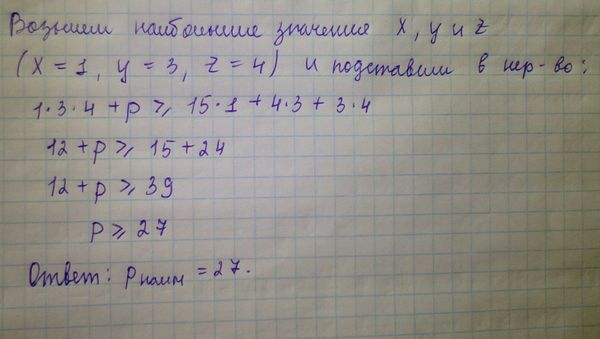 Возьмем наибольшие значения x, y и z
(x = 1, y = 3, z = 4) и подставим в нер-во:
1·3·4 + p ⩾ 15·1 + 4·3 + 3·4
12 + p ⩾ 15 + 24
12 + p ⩾ 39
p ⩾ 27
Ответ: p наим = 27.